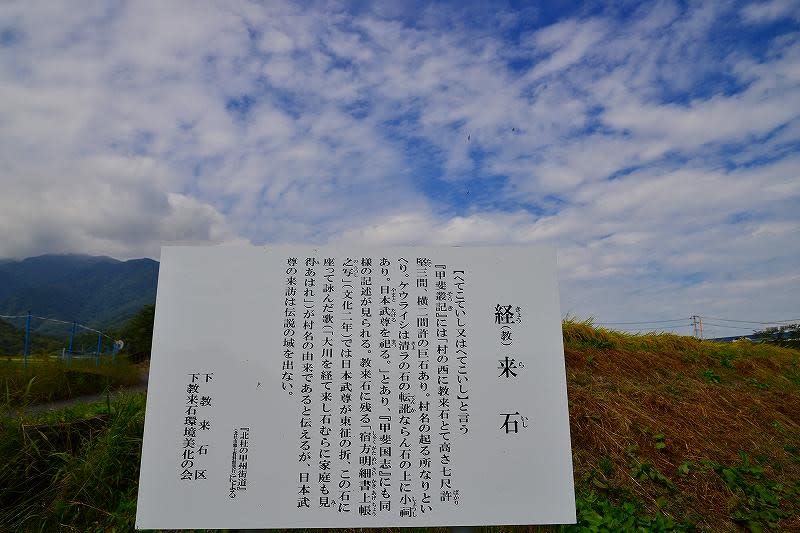 経（教）来石
【へてこいし又はへてこいし】と言う
『甲斐叢記』には「村の西に教来石とて高さ七尺許
堅三間、横二間許の巨石あり。村名の起る所なりとい
へり。ケウライシは清ラの石の転訛ならん石の上に小祠
あり。日本武尊を祀る。」とあり、『甲斐国志』にも同
様の記述が見られる。教来石に残る「宿方明細書上帳
之写」（文化二年）では日本武尊が東征の折、この石に
座って詠んだ歌（「大川を経て来し石むらに家庭も見
得あはれ」）が村名の由来であると伝えるが、日本武
尊の来訪は伝説の域を出ない。
『北杜の甲州街道』
による
下教来石区
下教来石環境美化の会